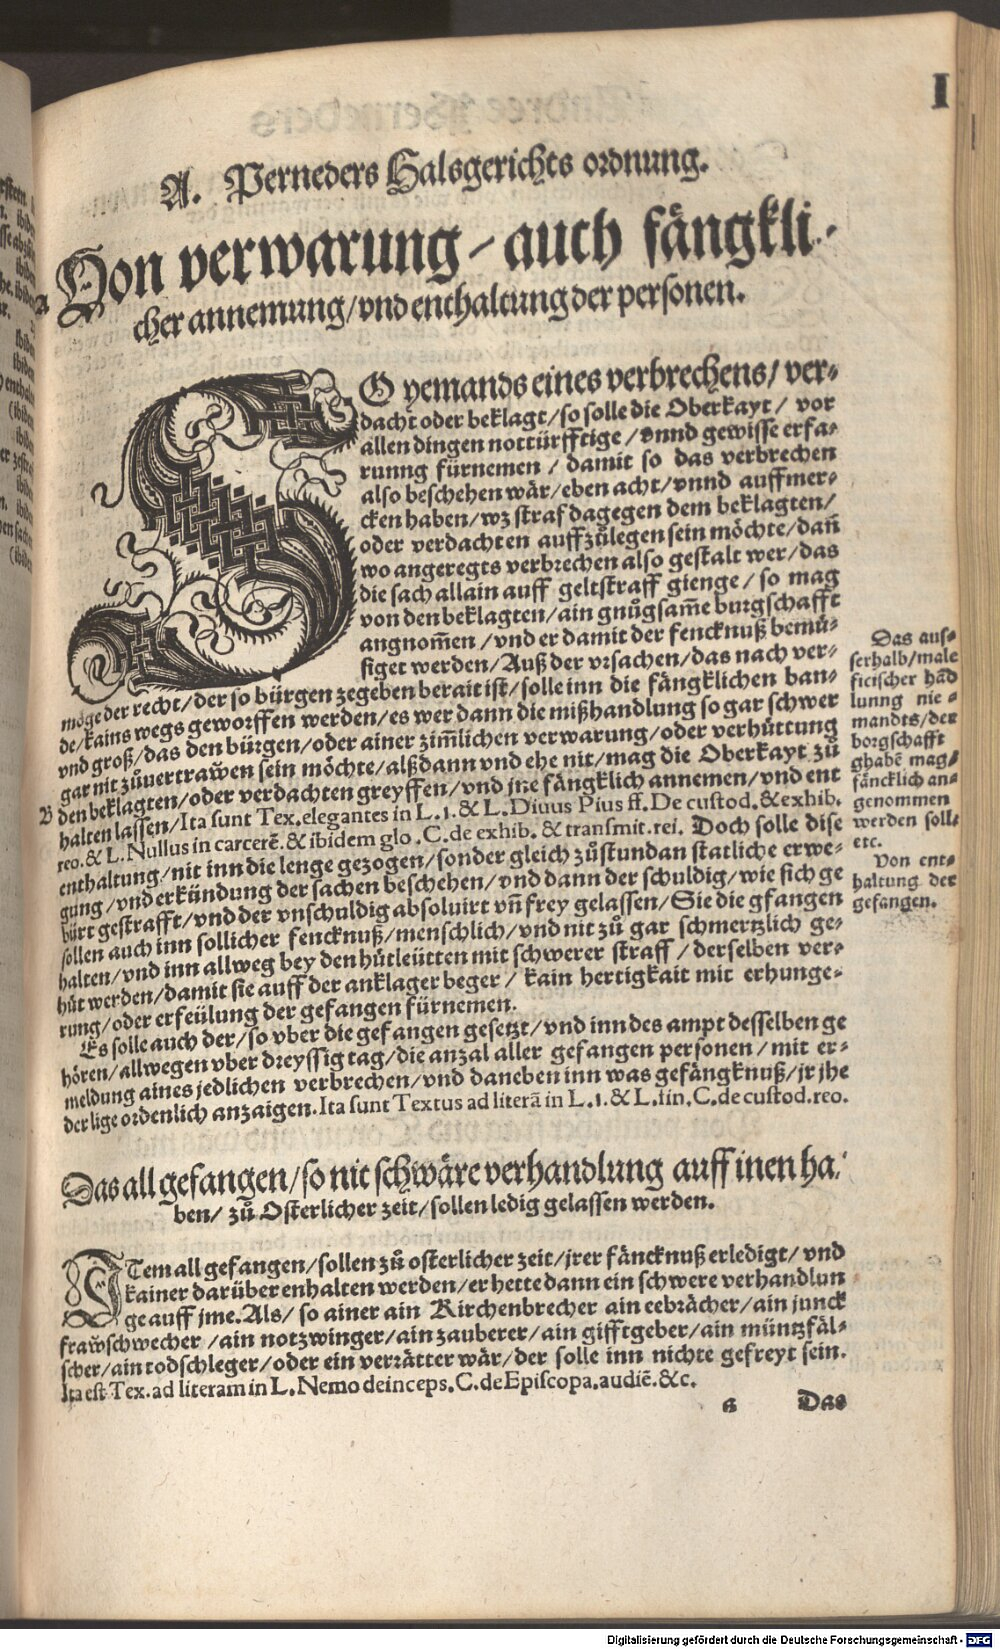 I
A. Perneders Halsgerichts ordnung.
Von verwarung / auch fängkli-
cher annemung / vnd enthaltung der personen.
A
SO yemands eines verbrechens / ver-
dacht oder beklagt / so solle die Oberkayt / vor
allen dingen nottürfftige / vnnd gewisse erfa-
runng fürnemen / damit so das verbrechen
also beschehen wär / eben acht / vnnd auffmer-
cken haben / wz straf dagegen dem beklagten /
oder verdachten auffzůlegen sein möchte / dañ
wo angeregts verbrechen also gestalt wer / das
die sach allain auff geltstraff gienge / so mag
von den beklagten / ain gnůgsam̃e burgschafft
angnom̃en / vnd er damit der fencknuß bemü-
siget werden / Auß der vrsachen / das nach ver-
möge der recht / der so bürgen zegeben berait ist / solle inn die fängklichen ban-
de / kains wegs geworffen werden / es wer dann die mißhandlung so gar schwer
vnd groß / das den bürgen / oder ainer zim̃lichen verwarung / oder verhüttung
gar nit zůuertraẅen sein möchte / alßdann vnd ehe nit / mag die Oberkayt zů
B den beklagten / oder verdachten greyffen / vnd jne fängklich annemen / vnd ent
halten lassen / Ita sunt Tex. elegantes in L. 1. & L. Diuus Pius ff. De custod. & exhib.
reo. & L. Nullus in carcerẽ. & ibidem glo. C. de exhib. & transmit. rei. Doch solle dise
enthaltung / nit inn die lenge gezogen / sonder gleich zůstundan statliche erwe-
gung / vnd erkündung der sachen beschehen / vnd dann der schuldig / wie sich ge
bürt gestrafft / vnd der vnschuldig absoluirt vñ frey gelassen / Sie die gfangen
sollen auch inn sollicher fencknuß / menschlich / vnd nit zů gar schmertzlich ge-
halten / vnd inn allweg bey den hůtleütten mit schwerer straff / derselben ver-
hůt werden / damit sie auff der anklager beger / kain hertigkait mit erhunge-
rung / oder erfeülung der gefangen fürnemen.
Es solle auch der / so vber die gefangen gesetzt / vnd inn des ampt desselben ge
hören / allwegen vber dreyssig tag / die anzal aller gefangen personen / mit er-
meldung aines jedlichen verbrechen / vnd daneben inn was gefängknuß / jr jhe
der lige ordenlich anzaigen. Ita sunt Textus ad literã in L. 1. & L. fin. C. de custod. reo.
Das aus-
serhalb / male
ficischer hãd
lunng nie-
mandts / der
borgschafft
ghabẽ mag /
fäncklich an-
genommen
werden soll.
etc.
Von ent-
haltung der
gefangen.
Das all gefangen / so nit schwäre verhandlung auff inen ha-
ben / zů Osterlicher zeit / sollen ledig gelassen werden.
ITem all gefangen / sollen zů osterlicher zeit / jrer fäncknuß erledigt / vnd
kainer darüber enhalten werden / er hette dann ein schwere verhandlun
ge auff jme. Als / so ainer ain Kirchenbrecher ain eebrächer / ain junck
fraẅschwecher / ain notzwinger / ain zauberer / ain gifftgeber / ain müntzfäl-
scher / ain todschleger / oder ein verrätter wär / der solle inn nichte gefreyt sein.
Ita est Tex. ad literam in L. Nemo deinceps. C. de Episcopa. audiẽ. &c.
a Das
Digitalisierung gefördert durch die Deutsche Forschungsgemeinschaft - DFG